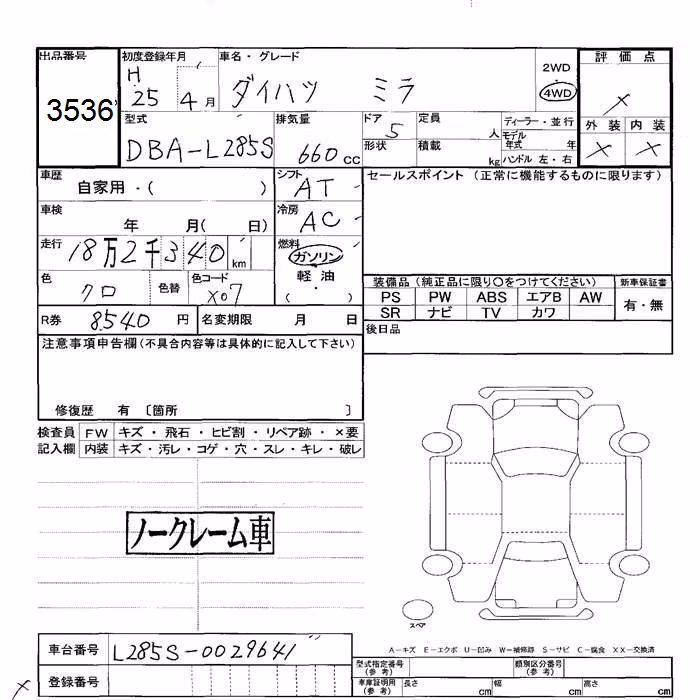 出品番号
3536
初度登録年月
H 25 4月
車名・グレード
ダイハツ ミラ
2WD
4WD
評価点
×
外装 内装
× ×
型式
DBA-L285S
排気量
660cc
ドア 5
形状
定員 人
積載 kg
ディーラー・並行
モデル年式 年
ハンドル 左・右
車歴
自家用・( )
シフト
AT
セールスポイント (正常に機能するものに限ります)
車検
年 月( 日)
冷房
AC
走行
18万2千340km
燃料
ガソリン
軽油
・( )
色
クロ
色替
色コード
X07
装備品 (純正品に限り○をつけてください)
新車保証書
PS PW ABS エアB AW
SR ナビ TV カワ
有・無
R券 8540円
名変期限 月 日
後日品
注意事項申告欄(不具合内容等は具体的に記入して下さい)
修復歴 有 〔箇所 〕
検査員 FW キズ・飛石・ヒビ割・リペア跡・×要
記入欄 内装 キズ・汚レ・コゲ・穴・スレ・キレ・破レ
ノークレーム車
スペア
A-キズ E-エクボ U-凹み W-補修跡 S-サビ C-腐食 XX-交換済
車台番号 L285S-0029641
登録番号
型式指定番号(参考)
類別区分番号(参考)
車庫証明用(参考) 長さ cm 幅 cm 高さ cm
×